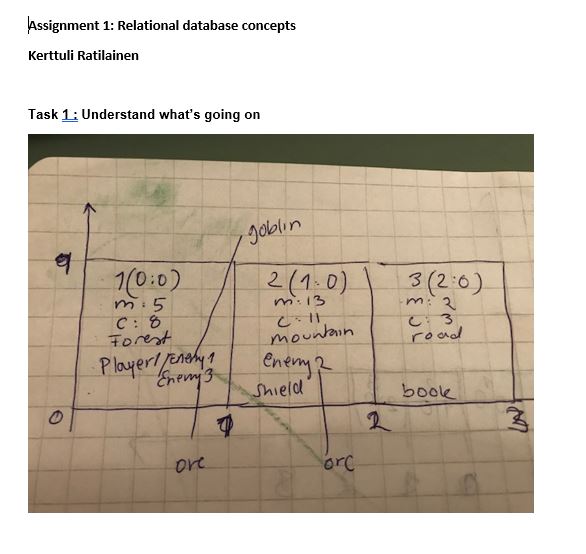 Assignment 1: Relational database concepts
Kerttuli Ratilainen
Task 1: Understand what's going on
goblin
1(0:0)
m: 5
C: 8
Forest
Player1/Enemy1
Enemy3
2(1:0)
m: 13
C: 11
mountain
Enemy 2
Shield
3(2:0)
m: 2
C: 3
road
book
0
2
3
orc
orc